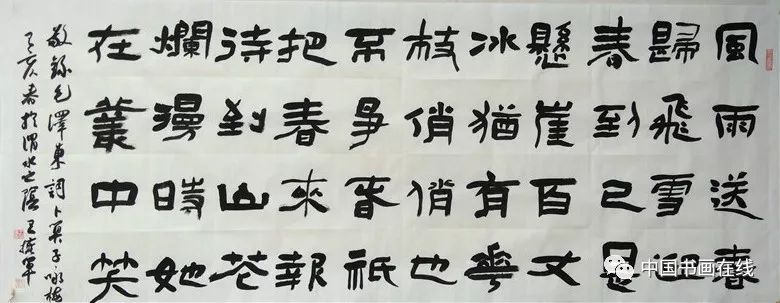 風雨送春
歸飛雪迎
春到已是
懸崖百丈
冰猶有華
枝俏俏也
不爭春祇
把春來報
待到山花
爛漫時她
在叢中笑
敬錄毛澤東詞卜算子詠梅
己亥春於渭水之陰 王軍
中国书画在线